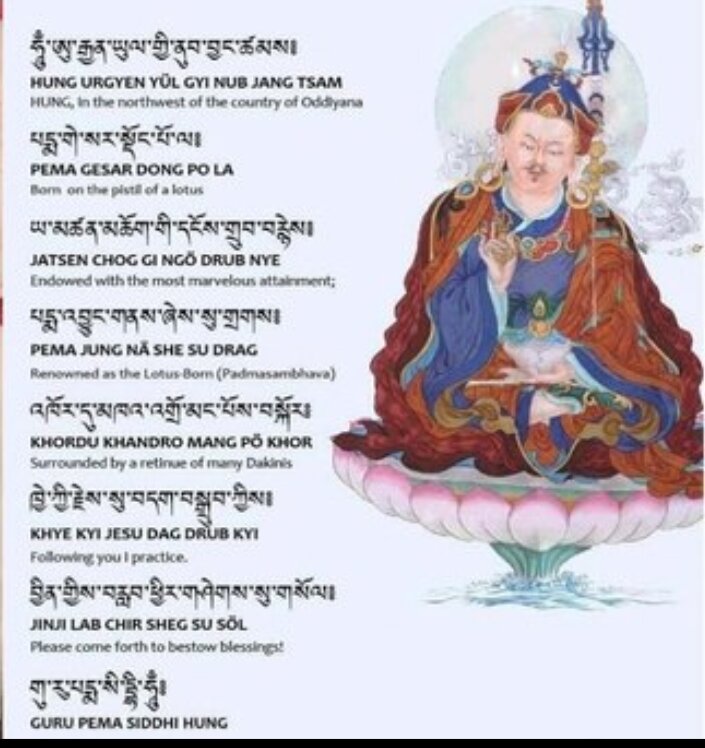 ཧཱུྃ་ཨུ་རྒྱན་ཡུལ་གྱི་ནུབ་བྱང་ཚམས༔
HUNG URGYEN YÜL GYI NUB JANG TSAM
HUNG, In the northwest of the country of Oddiyana
པདྨ་གེ་སར་སྡོང་པོ་ལ༔
PEMA GESAR DONG PO LA
Born on the pistil of a lotus
ཡ་མཚན་མཆོག་གི་དངོས་གྲུབ་བརྙེས༔
JATSEN CHOG GI NGÖ DRUB NYE
Endowed with the most marvelous attainment;
པདྨ་འབྱུང་གནས་ཞེས་སུ་གྲགས༔
PEMA JUNG NÄ SHE SU DRAG
Renowned as the Lotus-Born (Padmasambhava)
འཁོར་དུ་མཁའ་འགྲོ་མང་པོས་བསྐོར༔
KHORDU KHANDRO MANG PÖ KHOR
Surrounded by a retinue of many Dakinis
ཁྱེད་ཀྱི་རྗེས་སུ་བདག་བསྒྲུབ་ཀྱིས༔
KHYE KYI JESU DAG DRUB KYI
Following you I practice.
བྱིན་གྱིས་བརླབ་ཕྱིར་གཤེགས་སུ་གསོལ༔
JINJI LAB CHIR SHEG SU SÖL
Please come forth to bestow blessings!
གུ་རུ་པདྨ་སིདྡྷི་ཧཱུྃ༔
GURU PEMA SIDDHI HUNG